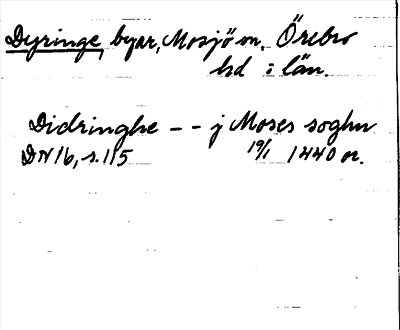 Dyringe, byar, Mosjö sn, Örebro
hd o län.
Didringhe - - j Moses soghn
DN 16, s. 115 19/1 1440 or.